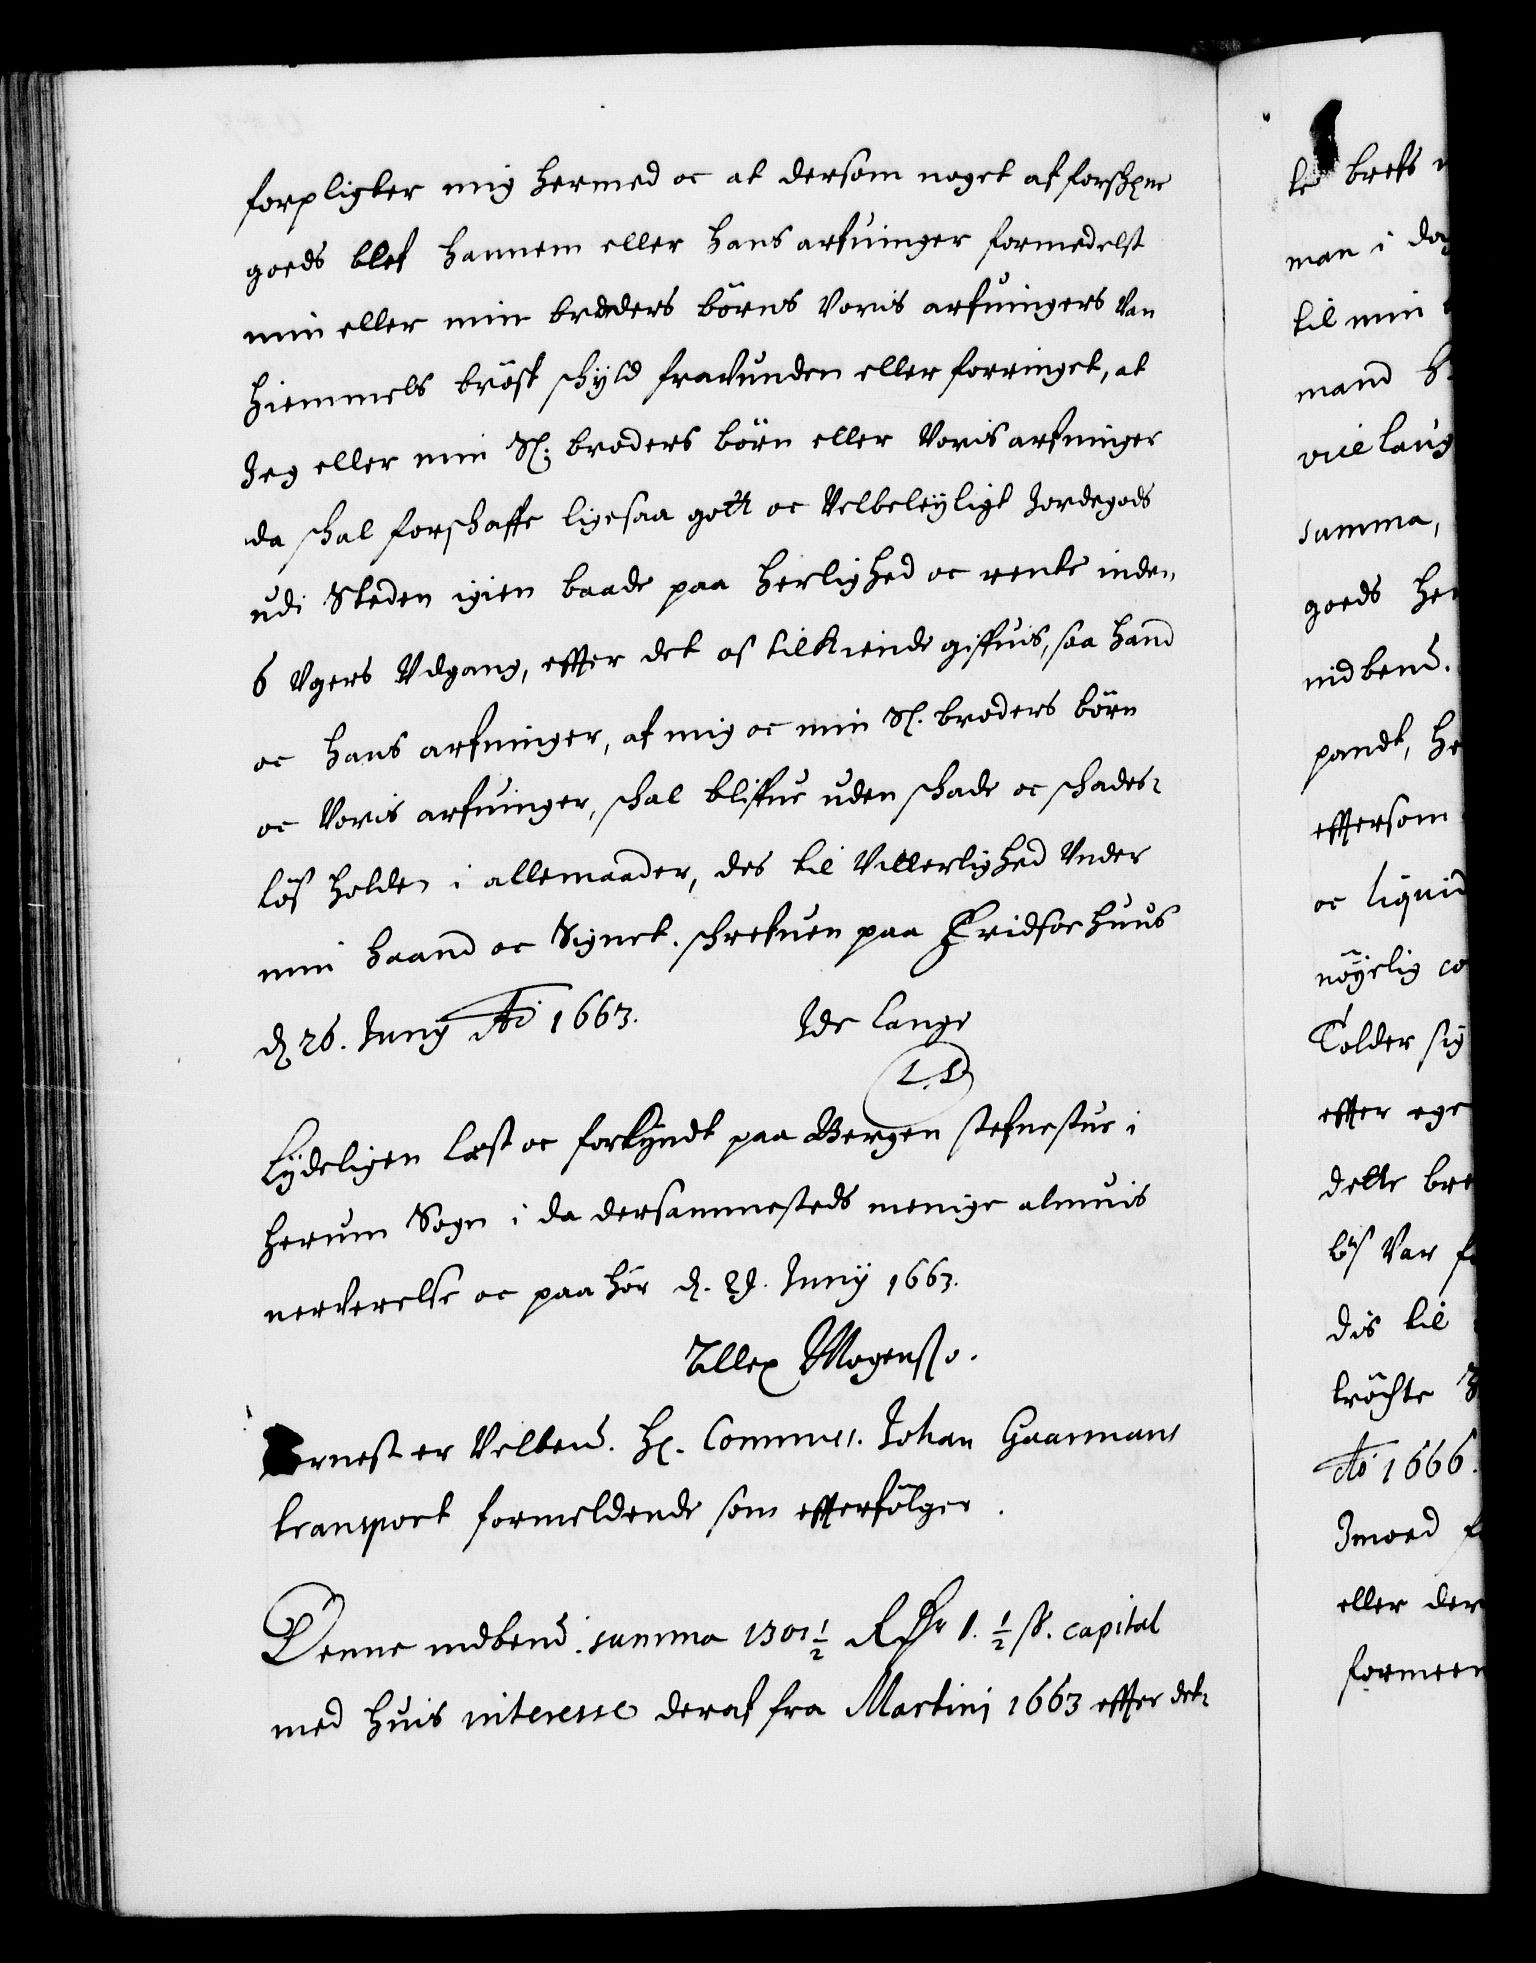 forpligter mig hermed oc at dersom noget af forschne
goeds blef hannem eller hans arfuinger formedelst
min eller min broders börns voris arfuingers van
hiemmels bröst schyld fravunden eller forringet, at
Jeg eller min Sl: broders börn eller Voris arfuinger
da schal forschaffe ligesaa gott oc Velbeleyligt Jordegods
udi Steden igien baade paa herlighed oc rente inden
6 Vgers Vdgang, effter det os tilkiende giffuis, saa hand
oc hans arfuinger, af mig oc min Sl. broders börn
oc Voris arfuinger, schal bliffue uden schade oc schades-
lös holden i allemaader, des til Vitterlighed Vnder
min haand oc Signet. schrefuen paa Fridsoe huus
d. 26. Junij Ao 1663. Ide Lange
L.S
Lydeligen læst oc forkyndt paa Bergen stefnestue i
Herum Sogn i da dersammesteds menige almuis
nerverelse oc paahör d. 29. Junij 1663.
Mogensö.
ernest er Velbend. Hr. Commiss. Johan Gaarmans
transport formeldende som effterfölger.
Denne indbend. summa 1301½ Rdr 1.½ ß. capital
med huis interesse deraf fra Martini 1663 effter det-
te brefs
man i
til min
mand
vice laug
summa,
goeds
indbend.
pandt,
effersom
oc liquid
nöyelig
Tolder sig
effter
dette
Var
dis til
Ao 1666.
Imod
eller der
formeen